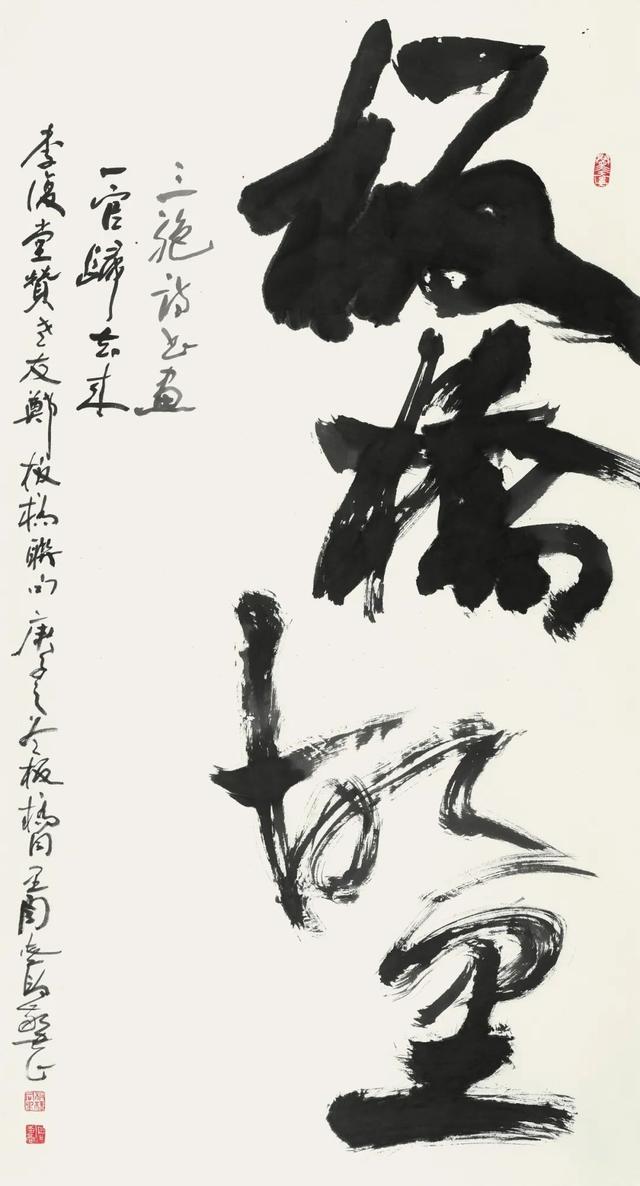 板橋故里
三絕詩書畫
一官歸去來
李復堂贊老友鄭板橋聯句庚子之冬板橋同里周